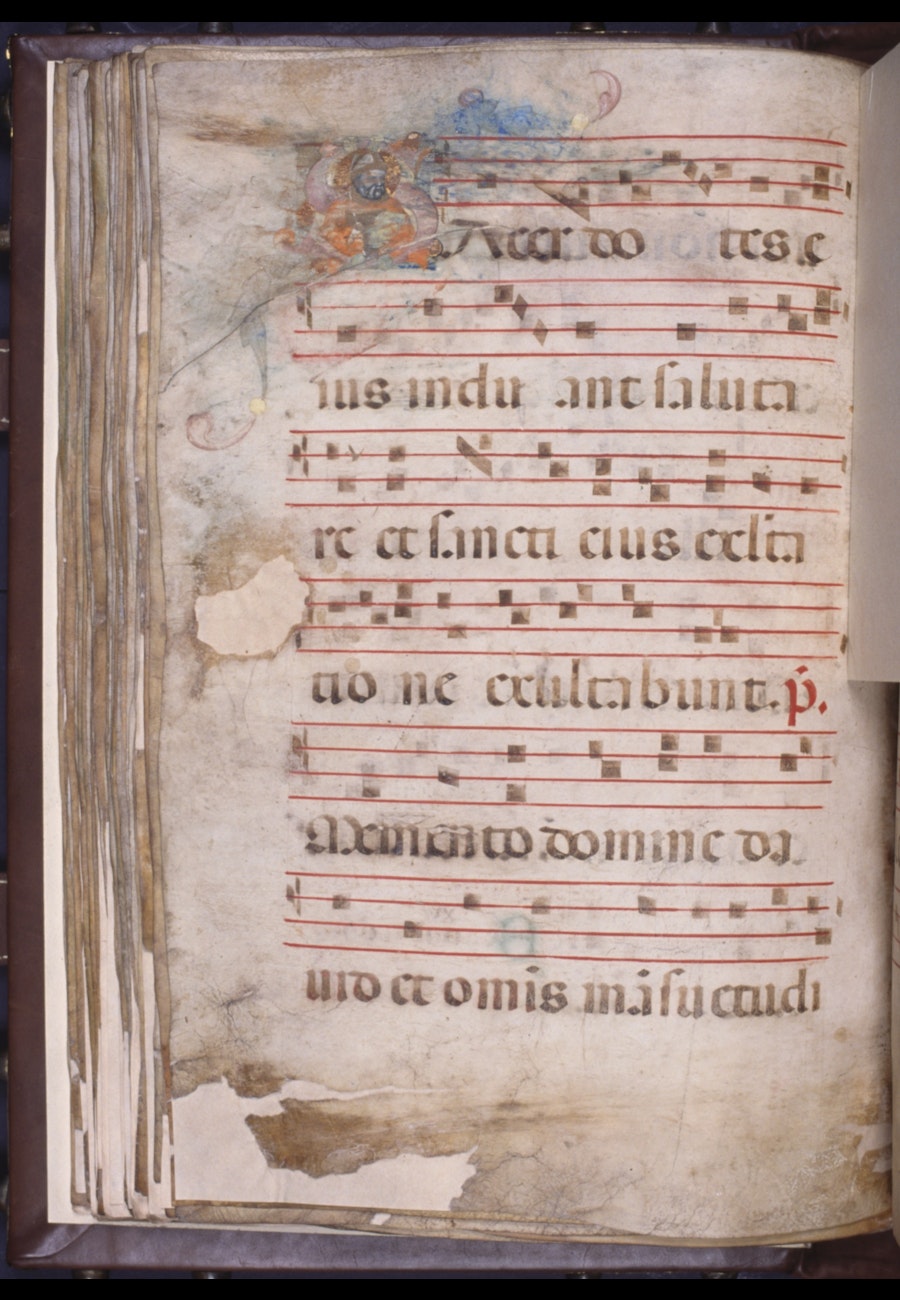 SAcer do tes e
ius indu ant saluta
re et sancti eius exulta
tio ne exulta bunt. p̄.
Memento domine da
uid et omīs mā suetudi